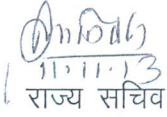 11.11.13
राज्य सचिव